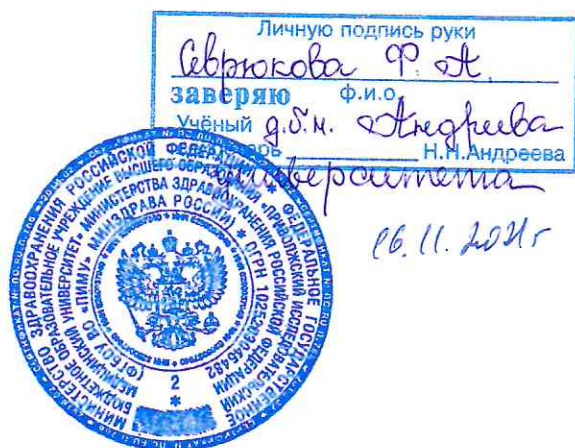 Личную подпись руки
Севрюкова Ф. А.
заверяю ф.и.о.
Учёный д.б.м. Андреева
Н.Н.Андреева
университета
16.11.2021г
МИНИСТЕРСТВО ЗДРАВООХРАНЕНИЯ РОССИЙСКОЙ ФЕДЕРАЦИИ * ФЕДЕРАЛЬНОЕ ГОСУДАРСТВЕННОЕ
БЮДЖЕТНОЕ ОБРАЗОВАТЕЛЬНОЕ УЧРЕЖДЕНИЕ ВЫСШЕГО ОБРАЗОВАНИЯ «ПРИВОЛЖСКИЙ ИССЛЕДОВАТЕЛЬСКИЙ
МЕДИЦИНСКИЙ УНИВЕРСИТЕТ» МИНИСТЕРСТВА ЗДРАВООХРАНЕНИЯ РОССИЙСКОЙ ФЕДЕРАЦИИ
(ФГБОУ ВО «ПИМУ» МИНЗДРАВА РОССИИ) * ОГРН 1025203045482
2
*